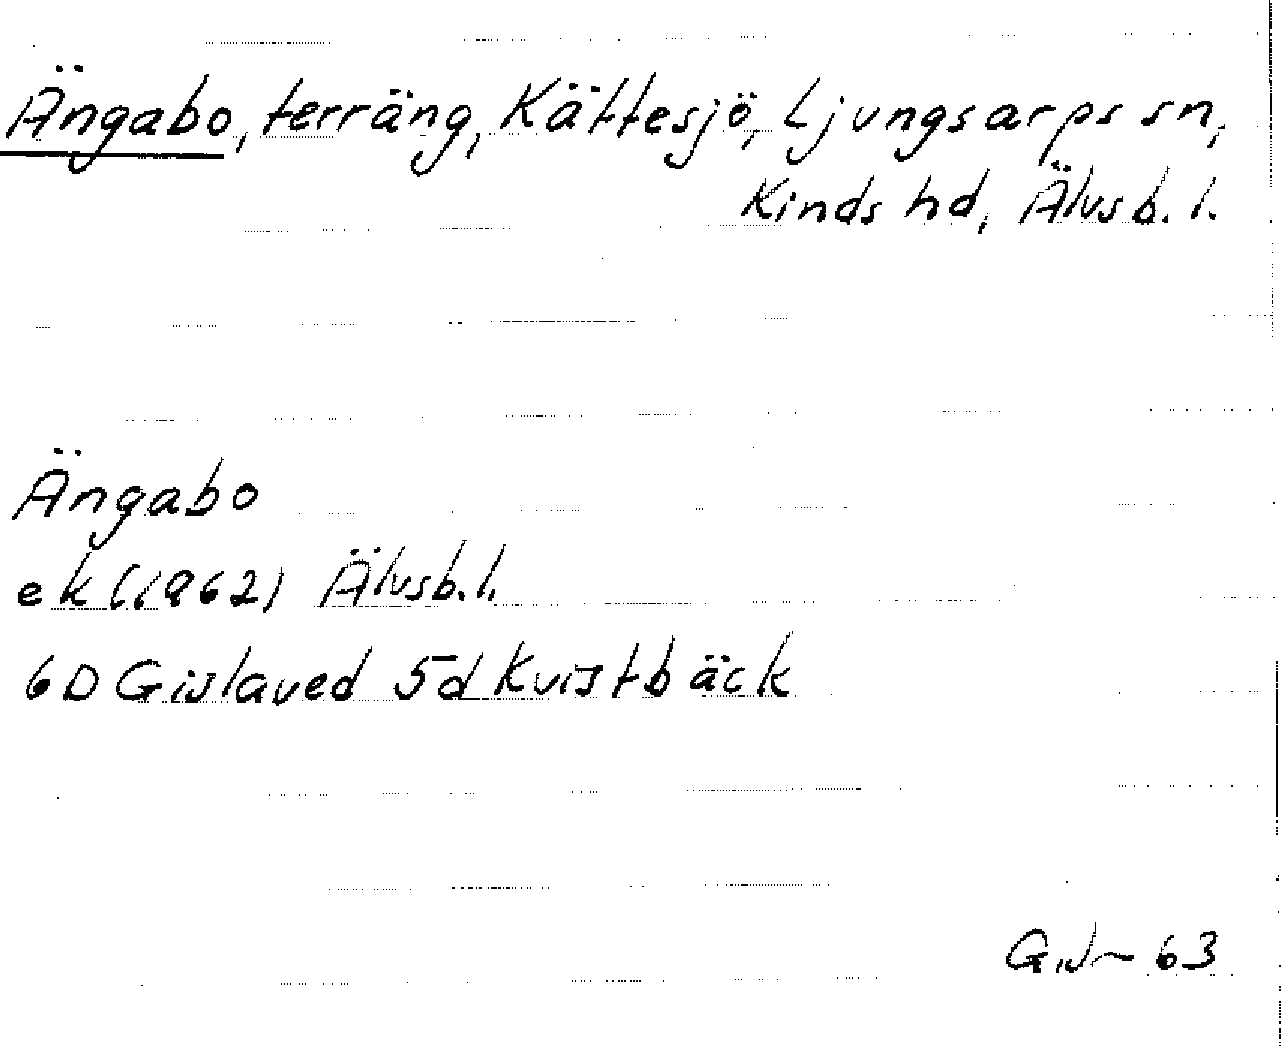 Ängabo, terräng, Kättesjö, Ljungsarps sn,
Kinds hd, Älvsb. l.
Ängabo
ek (1962) Älvsb. l.
6D Gislaved 5d Kvistbäck
63